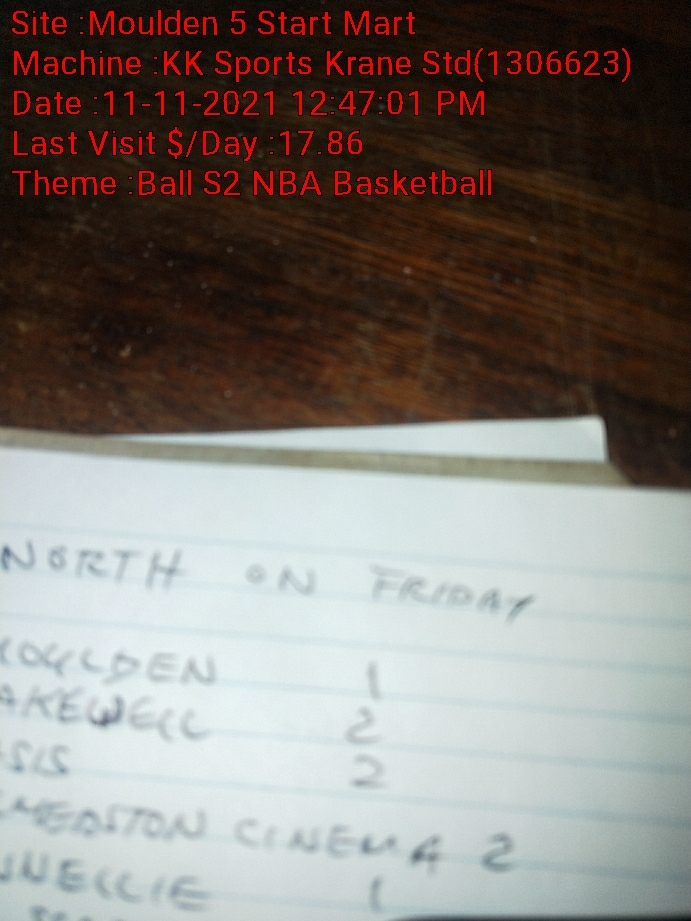 Site :Moulden 5 Start Mart
Machine :KK Sports Krane Std(1306623)
Date :11-11-2021 12:47:01 PM
Last Visit $/Day :17.86
Theme :Ball S2 NBA Basketball
NORTH ON FRIDAY
OULDEN 1
AKEWELL 2
SIS 2
CINEMA 2
NELLIE 1